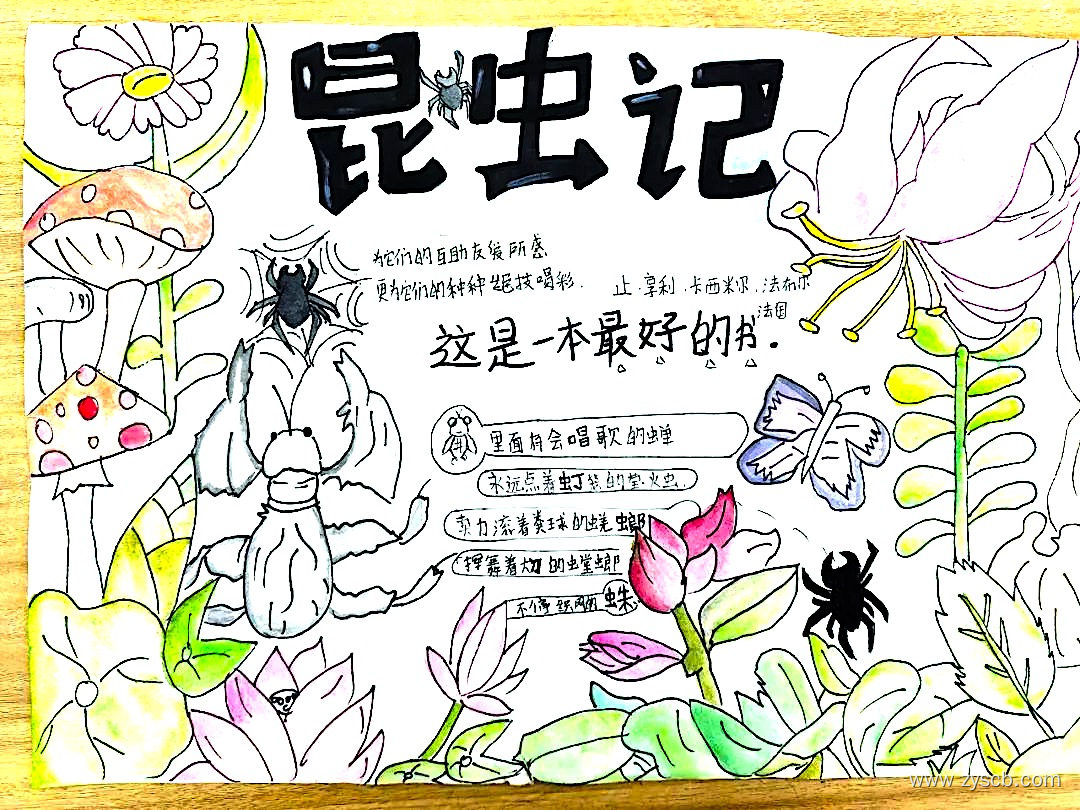 昆虫记
为它们的互助友爱所感
更为它们的种种绝技喝彩.
止.享利.卡西米尔.法布尔
法国
这是一本最好的书.
里面有会唱歌的蝉
永远点着灯笼的萤火虫
卖力滚着粪球的蜣螂
挥舞着大刀的螳螂
不停织网的蛛
www.zyscb.com